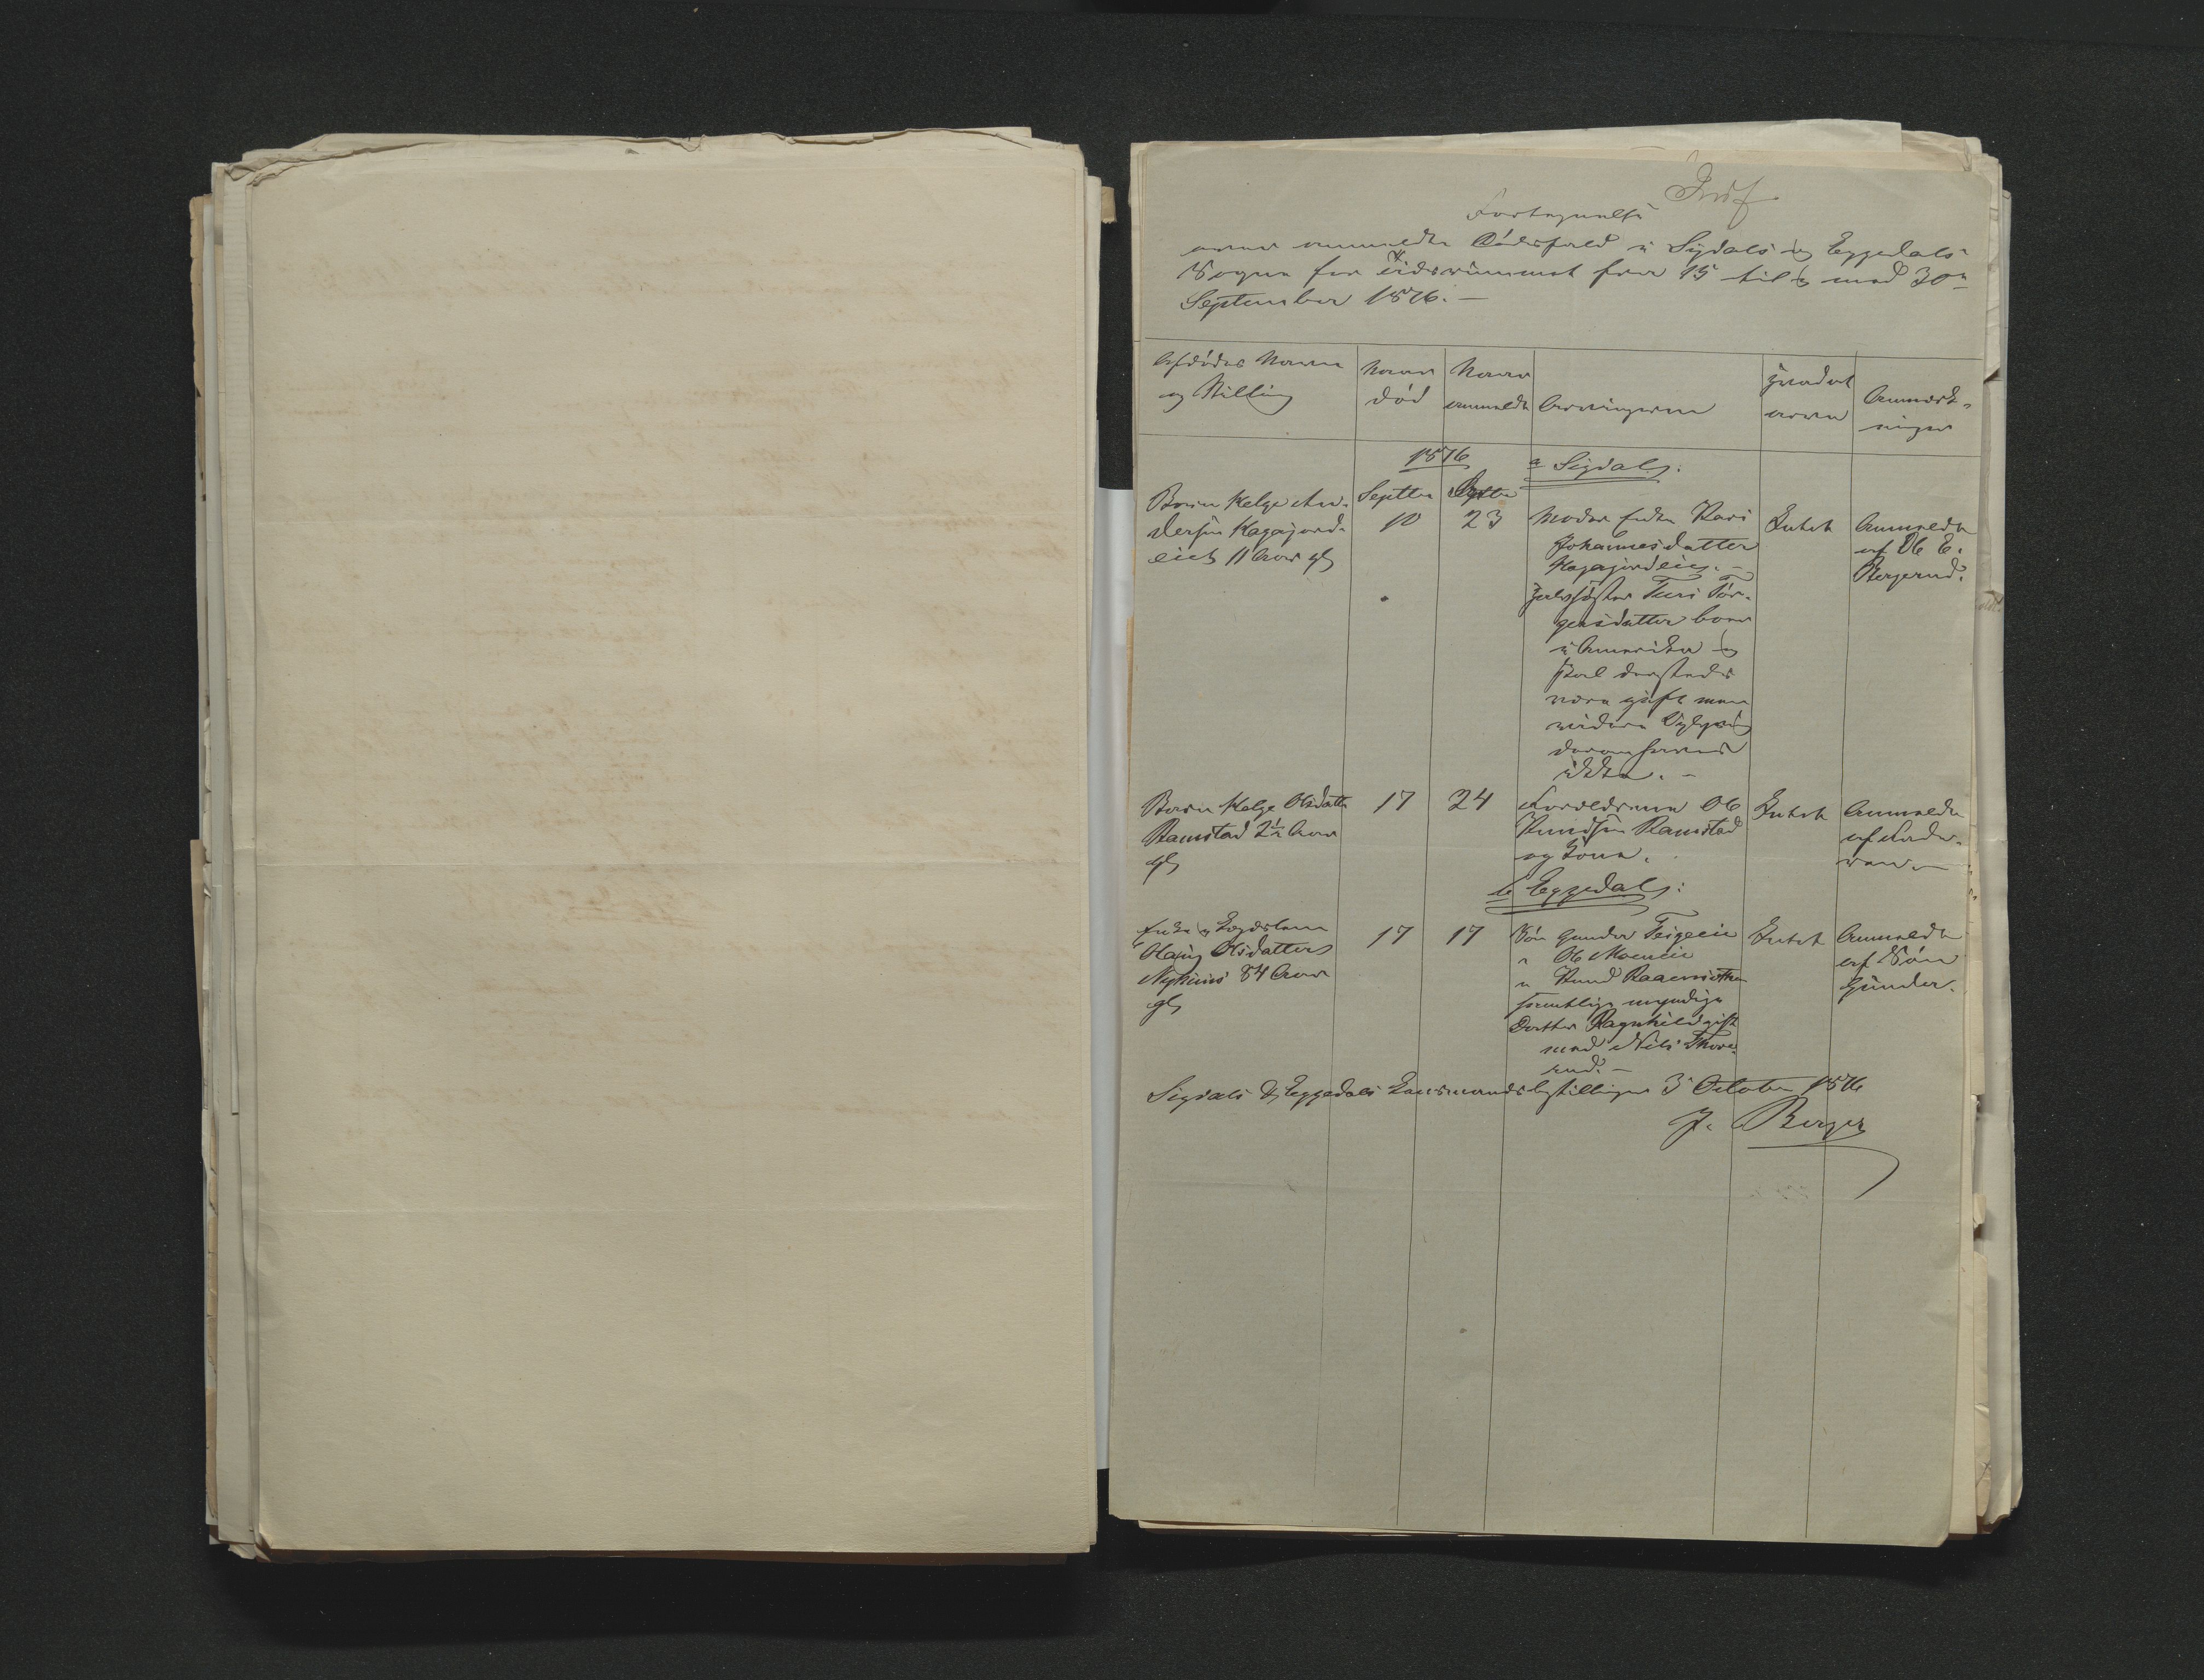 Indf
Fortegnelse
over anmeldte Dödsfald i Sigdals og Eggedals
Sogne for Tidsrummet fra 15 til og med 30te
September 1876. —
Afdödes Navn
og Stilling
Naar
död
Naar
anmeldt
Arvingerne
Indhold
Anmærk-
ninger
1876
a Sigdal:
Septbr
Septbr
Barn Helge An-
dersen Hagajord-
eiet 11 Aar gl
10
23
Moder Enke Kari
Johannesdatter
Hagajordeiet. —
Halvsöster Turi Tor-
gersdatter boer
i Amerika og
skal dersteds
være gift men
videre Oplysning
derom haves
ikke. —
Intet
Anmeldt
af Ole E.
Bergerud.
Barn Helge Olsdatter
Ramstad 2½ Aar
gl
17
24
Forældrene Ole
Knudsen Ramstad
og Kone.
Intet
Anmeldt
af Fade-
ren. —
b Eggedal:
Enke og Lægdslem
Olsdatter
84 Aar
gl
17
17
Sön Gunder Teigeeie
" Ole Moeneie
" Knud
samtlige myndige
Datter Ragnhild gift
med Nils Thore-
rud. —
Intet
Anmeldt
af Sön
Gunder.
Sigdals & Eggedals Lensmandsbestilling 3 October 1876
J. Berger